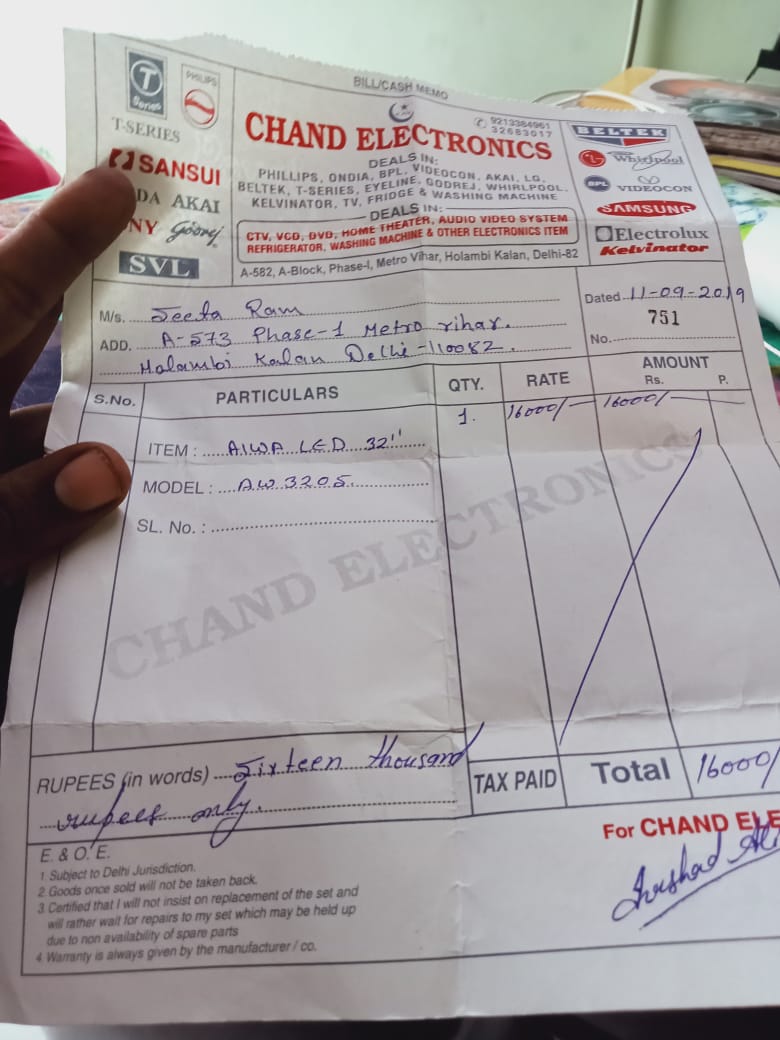 BILL/CASH MEMO
T Series
PHILIPS
T-SERIES
SANSUI
DA AKAI
NY Godrej
SVL
9213384961
32683017
CHAND ELECTRONICS
DEALS IN:
PHILLIPS, ONDIA, BPL, VIDEOCON, AKAI, LG,
BELTEK, T-SERIES, EYELINE, GODREJ, WHIRLPOOL,
KELVINATOR, TV, FRIDGE & WASHING MACHINE
DEALS IN:
CTV, VCD, DVD, HOME THEATER, AUDIO VIDEO SYSTEM
REFRIGERATOR, WASHING MACHINE & OTHER ELECTRONICS ITEM
A-582, A-Block, Phase-I, Metro Vihar, Holambi Kalan, Delhi-82
BELTEK
LG Whirlpool
BPL VIDEOCON
SAMSUNG
Electrolux
Kelvinator
M/s. Seeta Ram
ADD. A-573 Phase-1 Metro vihar.
Holambi Kalan Delhi-110082.
Dated 11-09-2019
No. 751
S.No. PARTICULARS QTY. RATE AMOUNT
Rs. P.
ITEM : AIWA LED 32" 1. 16000/- 16000/-
MODEL : AW320S.
SL. No. :
CHAND ELECTRONICS
RUPEES (in words) Sixteen thousand
rupees only.
TAX PAID Total 16000/
For CHAND ELE
Irshad Ali
E. & O. E.
1. Subject to Delhi Jurisdiction.
2. Goods once sold will not be taken back.
3. Certified that I will not insist on replacement of the set and
will rather wait for repairs to my set which may be held up
due to non availability of spare parts
4. Warranty is always given by the manufacturer / co.